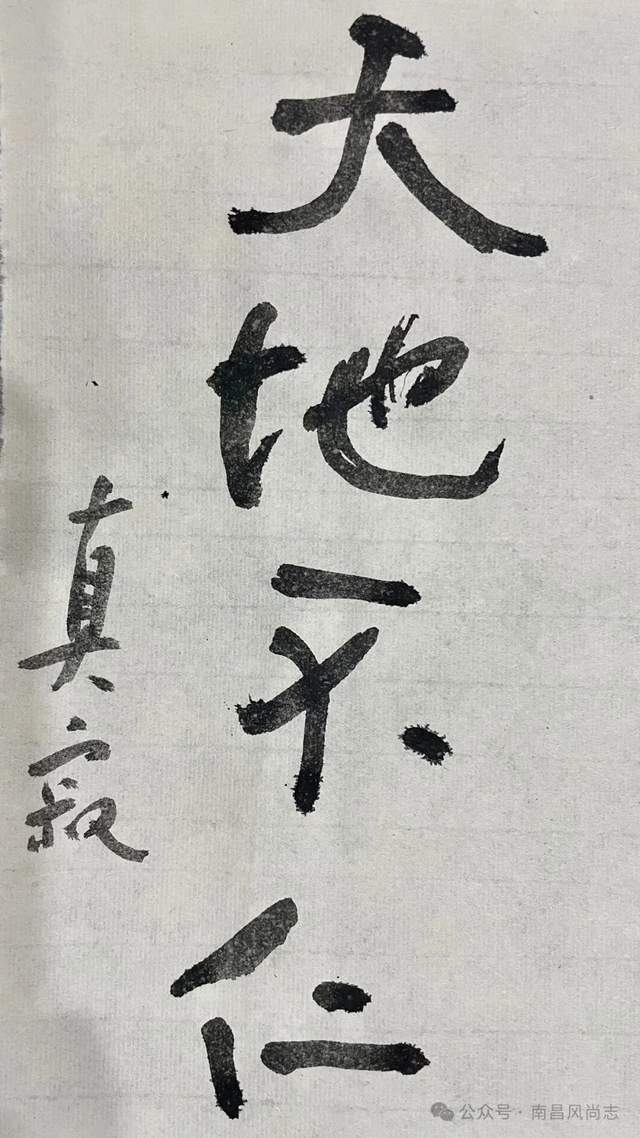 天地不仁
真寂
公众号·南昌风尚志